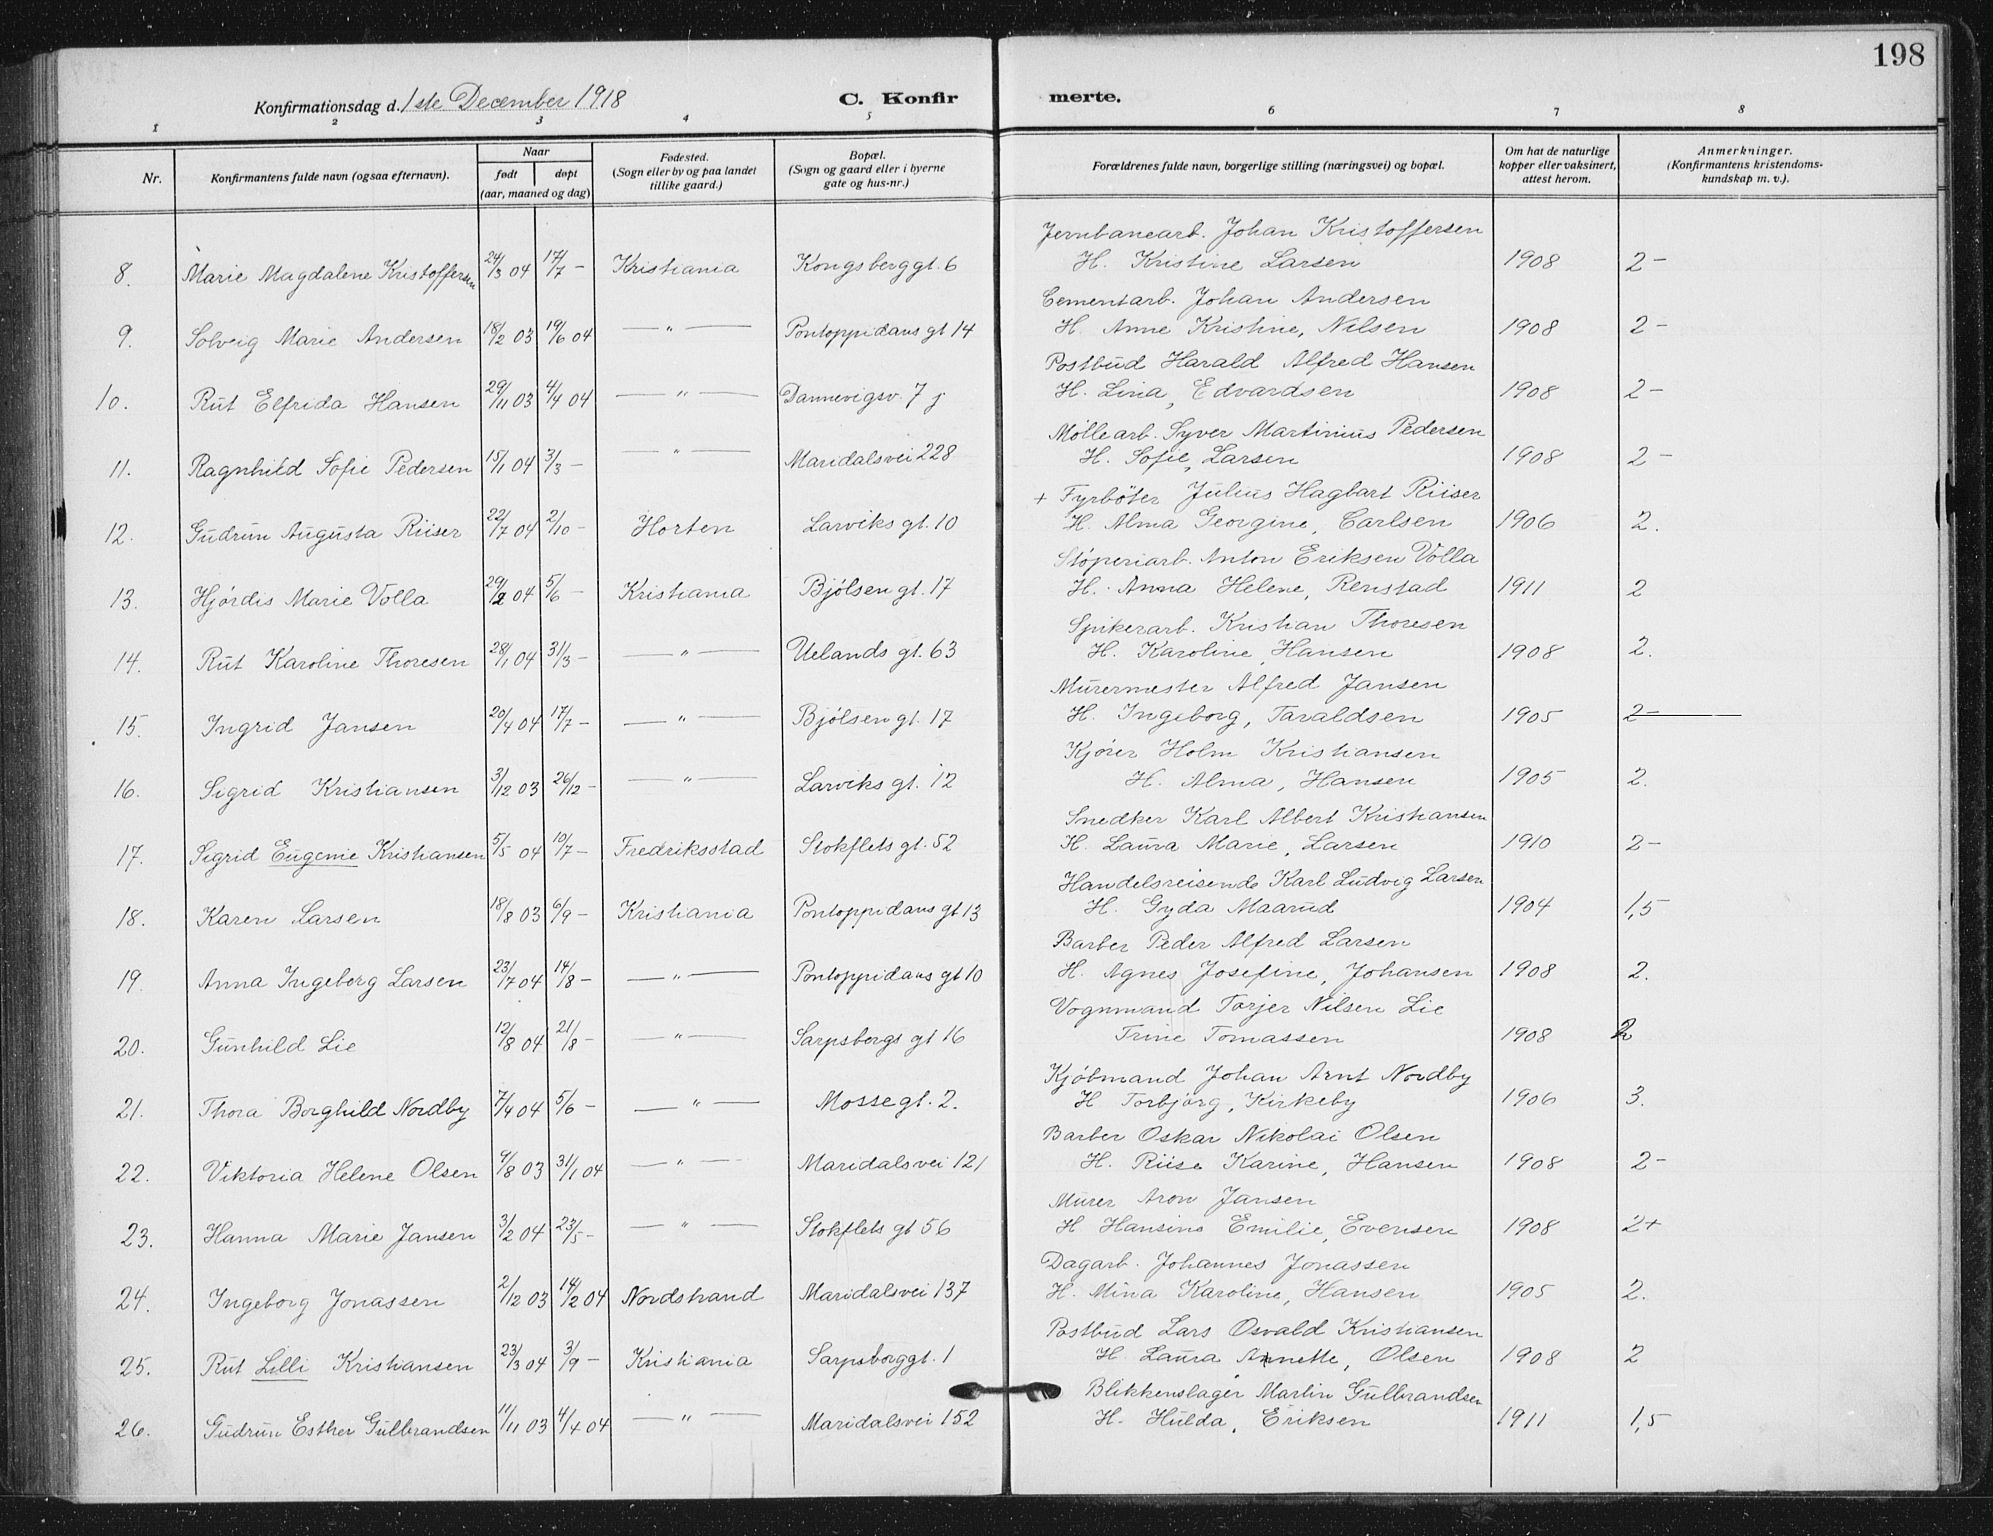 198
Konfirmationsdag d. 1ste December 1918 C. Konfir merte.
1 2 3 4 5 6 7 8
Nr. Konfirmantens fulde navn (ogsaa efternavn). Naar født døpt (aar, maaned og dag) Fødested. (Sogn eller by og paa landet tillike gaard.) Bopæl. (Sogn og gaard eller i byerne gate og hus-nr.) Forældrenes fulde navn, borgerlige stilling (næringsvei) og bopæl. Om hat de naturlige kopper eller vaksinert, attest herom. Anmerkninger. (Konfirmantens kristendoms-kundskap m. v.).
Jernbanearb. Johan Kristoffersen
8. Marie Magdalene Kristoffersen 24/3 04 17/7 – Kristiania Kongsberggt. 6 H. Kristine Larsen 1908 2 –
Cementarb. Johan Andersen
9. Solveig Marie Andersen 18/2 03 19/6 04 — " — Pontoppidans gt 14 H. Anne Kristine, Nilsen 1908 2 –
Postbud Harald Alfred Hansen
10. Rut Elfrida Hansen 29/11 03 4/4 04 — " — Dannevigsv. 7 j H. Lina, Edvardsen 1908 2 –
Møllearb. Syver Martinius Pedersen
11. Ragnhild Sofie Pedersen 15/1 04 3/3 – " — Maridalsvei 228 H. Sofie, Larsen 1908 2 –
+ Fyrbøter Julius Hagbart Riiser
12. Gudrun Augusta Riiser 22/7 04 2/10 – Horten Larviks gt. 10 H. Alma Georgine, Carlsen 1906 2.
Støperiarb. Anton Eriksen Volla
13. Hjørdis Marie Volla 29/2 04 5/6 – Kristiania Bjølsen gt. 17 H. Anna Helene, Renstad 1911 2
Spikerarb. Kristian Thoresen
14. Rut Karoline Thoresen 28/1 04 31/3 – — " — Uelands gt. 63 H. Karoline, Hansen 1908 2.
Murermester Alfred Jansen
15. Ingrid Jansen 20/4 04 17/7 – — " — Bjølsen gt. 17 H. Ingeborg, Taraldsen 1905 2 –
Kjører Holm Kristiansen
16. Sigrid Kristiansen 3/12 03 26/12 – — " — Larviks gt. 12 H. Alma, Hansen 1905 2.
Snedker Karl Albert Kristiansen
17. Sigrid Eugenie Kristiansen 5/5 04 10/7 – Fredriksstad Stokflets gt. 52 H. Laura Marie, Larsen 1910 2 –
Handelsreisende Karl Ludvig Larsen
18. Karen Larsen 18/8 03 6/9 – Kristiania Pontoppidans gt 13 H. Gyda Maarud 1904 1,5
Barber Peder Alfred Larsen
19. Anna Ingeborg Larsen 23/7 04 14/8 – — " — Pontoppidans gt 10 H. Agnes Josefine, Johansen 1908 2.
Vognmand Torjer Nilsen Lie
20. Gunhild Lie 12/8 04 21/8 – — " — Sarpsborgs gt 16 Trine Tomassen 1908 2
Kjøbmand Johan Arnt Nordby
21. Thora Borghild Nordby 7/4 04 5/6 – — " — Mosse gt. 2. H Torbjørg, Kirkeby 1906 3.
Barber Oskar Nikolai Olsen
22. Viktoria Helene Olsen 9/8 03 31/1 04 — " — Maridalsvei 121 H. Riise Karine, Hansen 1908 2 –
Murer Aron Jansen
23. Hanna Marie Jansen 3/2 04 23/5 – — " — Stokflets gt 56 H Hansine Emilie, Evensen 1908 2+
Dagarb. Johannes Jonassen
24. Ingeborg Jonassen 2/12 03 14/2 04 Nordstrand Maridalsvei 137 H. Mina Karoline, Hansen 1905 2.
Postbud Lars Osvald Kristiansen
25. Rut Lilli Kristiansen 23/3 04 3/9 – Kristiania Sarpsborggt. 1 H. Laura Annette, Olsen 1908 2
Blikkenslager Martin Gulbrandsen
26. Gudrun Esther Gulbrandsen 11/11 03 4/4 04 — " — Maridalsvei 152 H. Hulda, Eriksen 1911 1,5